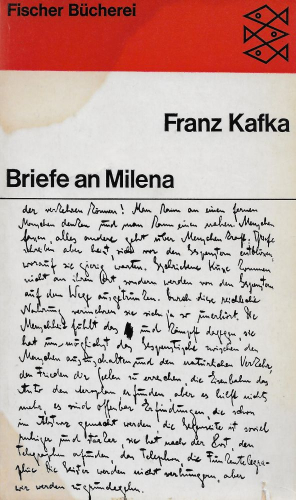 Fischer Bücherei
Franz Kafka
Briefe an Milena
der verkehren können! Man kann an einen fernen
Menschen denken und man kann einen nahen Menschen
fassen, alles andere geht über Menschenkraft. Briefe
schreiben aber heißt, sich vor den Gespenstern entblößen,
worauf sie gierig warten. Geschriebene Küsse kommen
nicht an ihren Ort, sondern werden von den Gespenstern
auf dem Wege ausgetrunken. Durch diese reichliche
Nahrung vermehren sie sich ja so unerhört. Die
Menschheit fühlt das und kämpft dagegen, sie
hat um möglichst das Gespenstische zwischen den
Menschen auszuschalten und den natürlichen Verkehr,
den Frieden der Seelen zu erreichen, die Eisenbahn, das
Auto, den Aeroplan erfunden, aber es hilft nichts
mehr, es sind offenbar Erfindungen, die schon
im Absturz gemacht werden, die Gegenseite ist soviel
ruhiger und stärker, sie hat nach der Post, den
Telegraphen erfunden, das Telephon, die Funkentelegra-
phie. Die Geister werden nicht verhungern, aber
wir werden zugrundegehn.